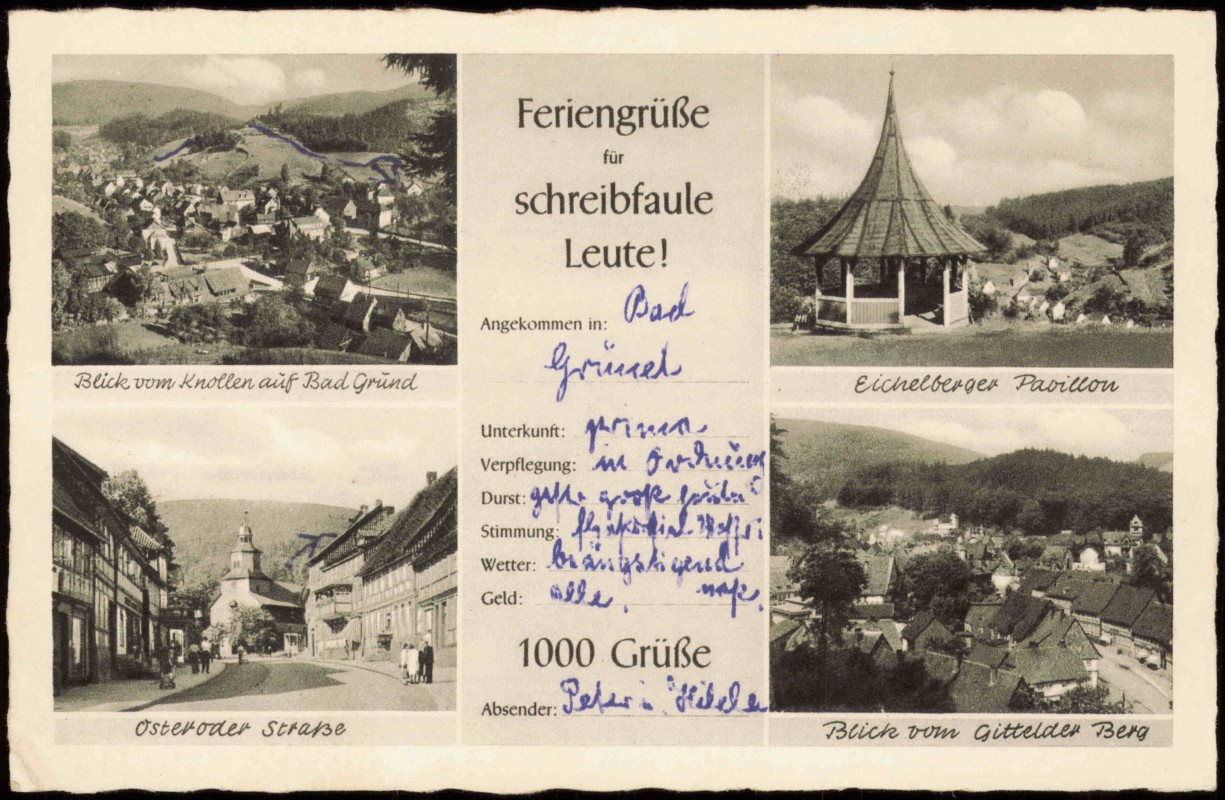 Feriengrüße
für
schreibfaule
Leute!
Angekommen in: Bad
Grund
Unterkunft: prima
Verpflegung: in Ordnung
Durst: groß
Stimmung:
Wetter: beängstigend
naß.
Geld: alle.
1000 Grüße
Absender: Peter u.
Blick vom Knollen auf Bad Grund
Osteroder Straße
Eichelberger Pavillon
Blick vom Gittelder Berg